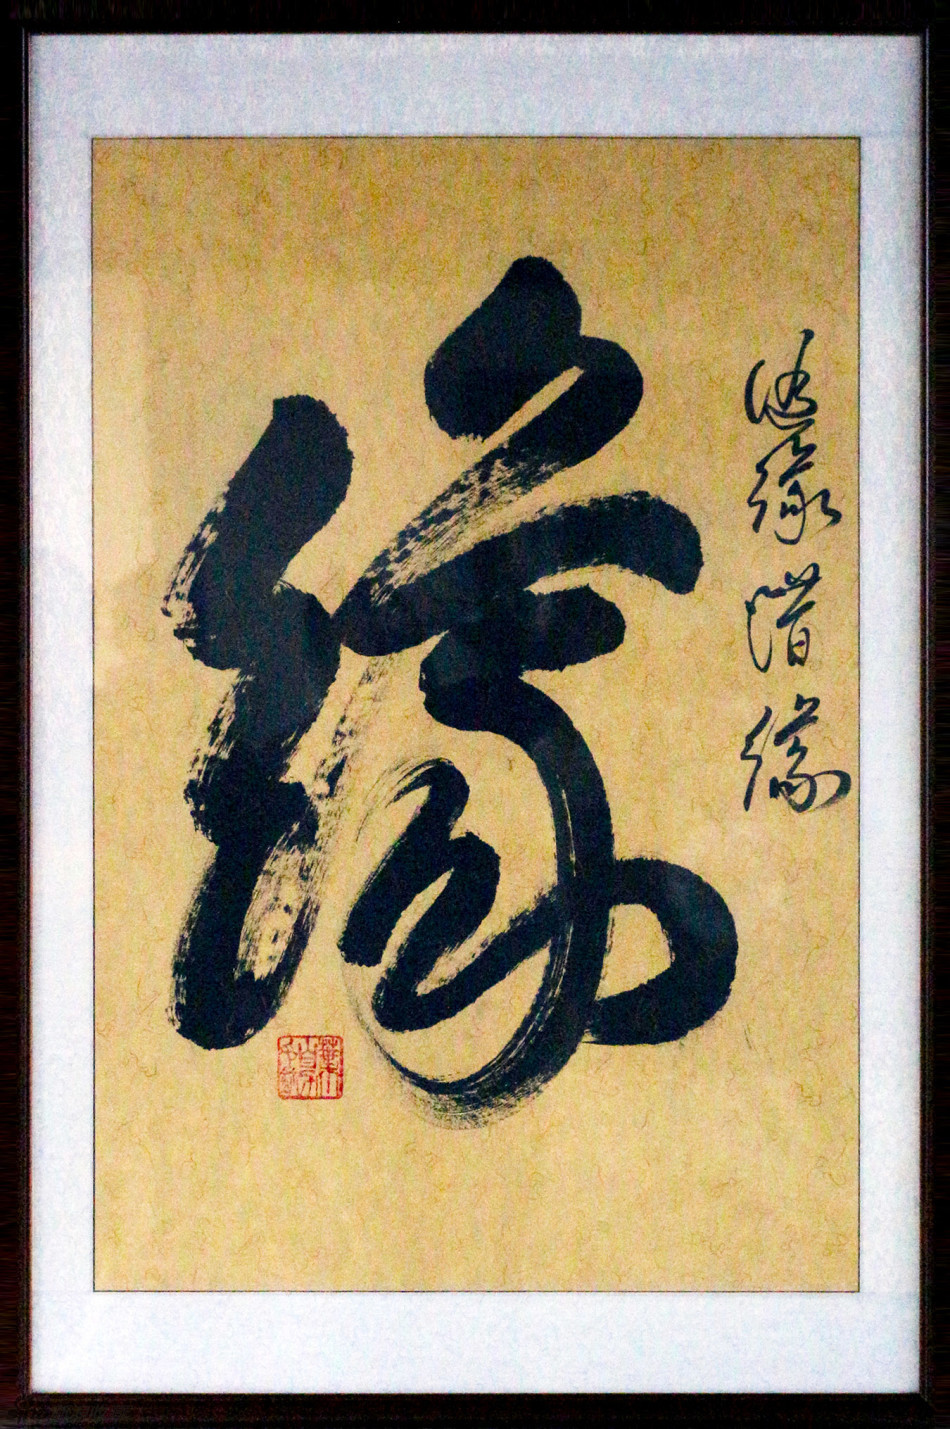 隨緣惜緣
緣